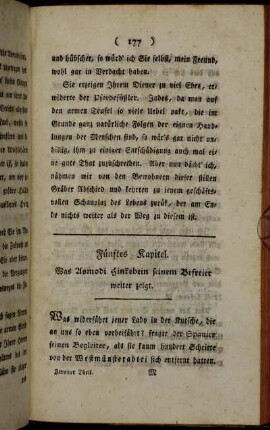 ( 177 )
und hübscher, so würd' ich Sie selbst, mein Freund,
wohl gar in Verdacht haben.
Sie erzeigen Ihrem Diener zu viel Ehre, er-
wiederte der Pferdefüßler. Indes, da man auf
den armen Teufel so viele Uebel pakt, die im
Grunde ganz natürliche Folgen der eignen Hand-
lungen der Menschen sind, so wär's gar nicht un-
billig, ihm zu einiger Entschädigung auch mal ei-
ne gute That zuzuschreiben. Aber nun dächt' ich,
nähmen wir von den Bewohnern dieser stillen
Gräber Abschied und kehrten zu jenem geschäfts-
vollen Schauplaz des Lebens zurük, der am En-
de nichts weiter als der Weg zu diesem ist.
Fünftes Kapitel.
Was Asmodi Hinkebein seinem Befreier
weiter zeigt.
Was widerfährt jener Lady in der Kutsche, die
an uns so eben vorbeifährt? fragte der Spanier
seinen Begleiter, als sie kaum hundert Schritte
von der Westmünsterabtei sich entfernt hatten.
Zweiter Theil. M